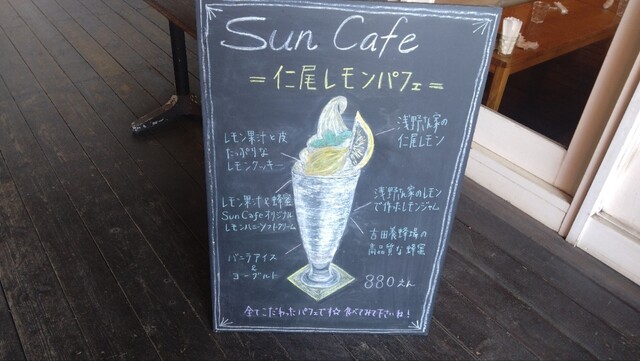 Sun Cafe
=仁尾レモンパフェ=
レモン果汁と皮
たっぷりな
レモンクッキー
浅野さん家の
仁尾レモン
レモン果汁&蜂蜜
Sun Cafeオリジナル
レモンハニーソフトクリーム
浅野さん家のレモン
で作ったレモンジャム
バニラアイス
&
ヨーグルト
古田養蜂場の
高品質な蜂蜜
880えん
全てこだわったパフェです☆食べてみて下さいね!